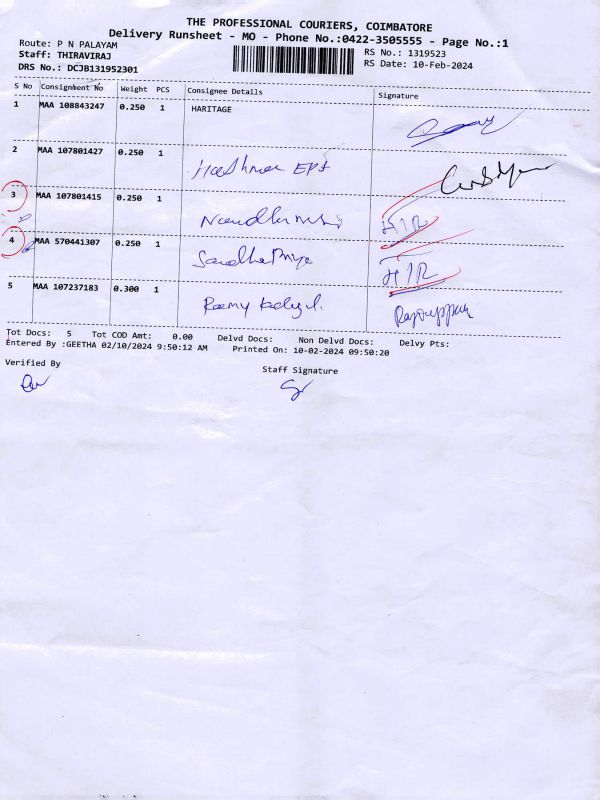 THE PROFESSIONAL COURIERS, COIMBATORE
Delivery Runsheet - MO - Phone No.:0422-3505555 - Page No.:1
Route: P N PALAYAM
Staff: THIRAVIRAJ
DRS No.: DCJB131952301
RS No.: 1319523
RS Date: 10-Feb-2024
S No Consignment No Weight PCS Consignee Details Signature
1 MAA 108843247 0.250 1 HARITAGE
2 MAA 107801427 0.250 1
3 MAA 107801415 0.250 1 H/R
4 MAA 570441307 0.250 1 H/R
5 MAA 107237183 0.300 1
Tot Docs: 5 Tot COD Amt: 0.00 Delvd Docs: Non Delvd Docs: Delvy Pts:
Entered By :GEETHA 02/10/2024 9:50:12 AM Printed On: 10-02-2024 09:50:20
Verified By
Staff Signature